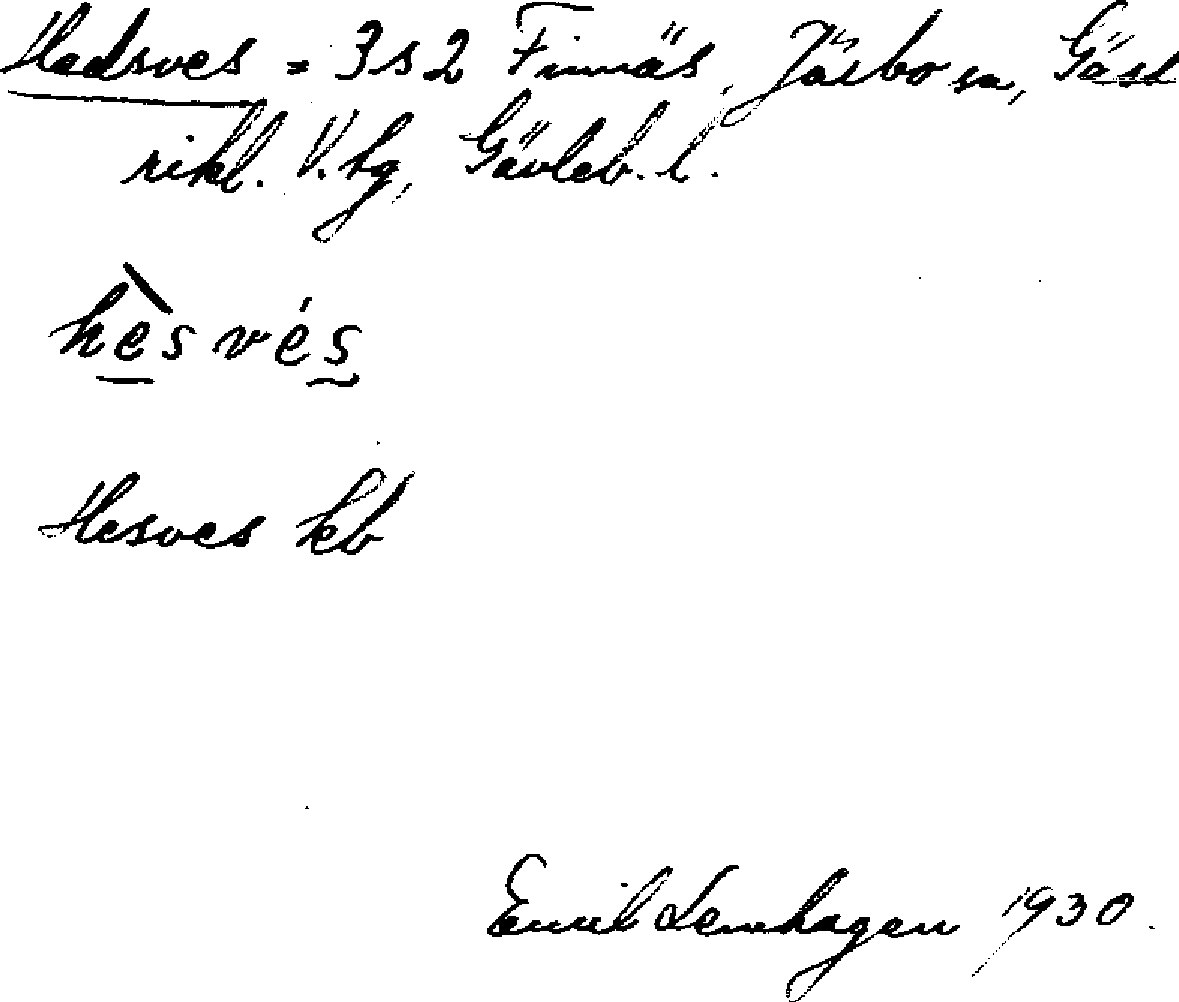 Hedsves = 3s2 Finnäs, Järbo sn, Gäst
rikl. V. hg, Gävleb. l.
hèsvés
Hesves kb
Emil Lenhagen 1930.